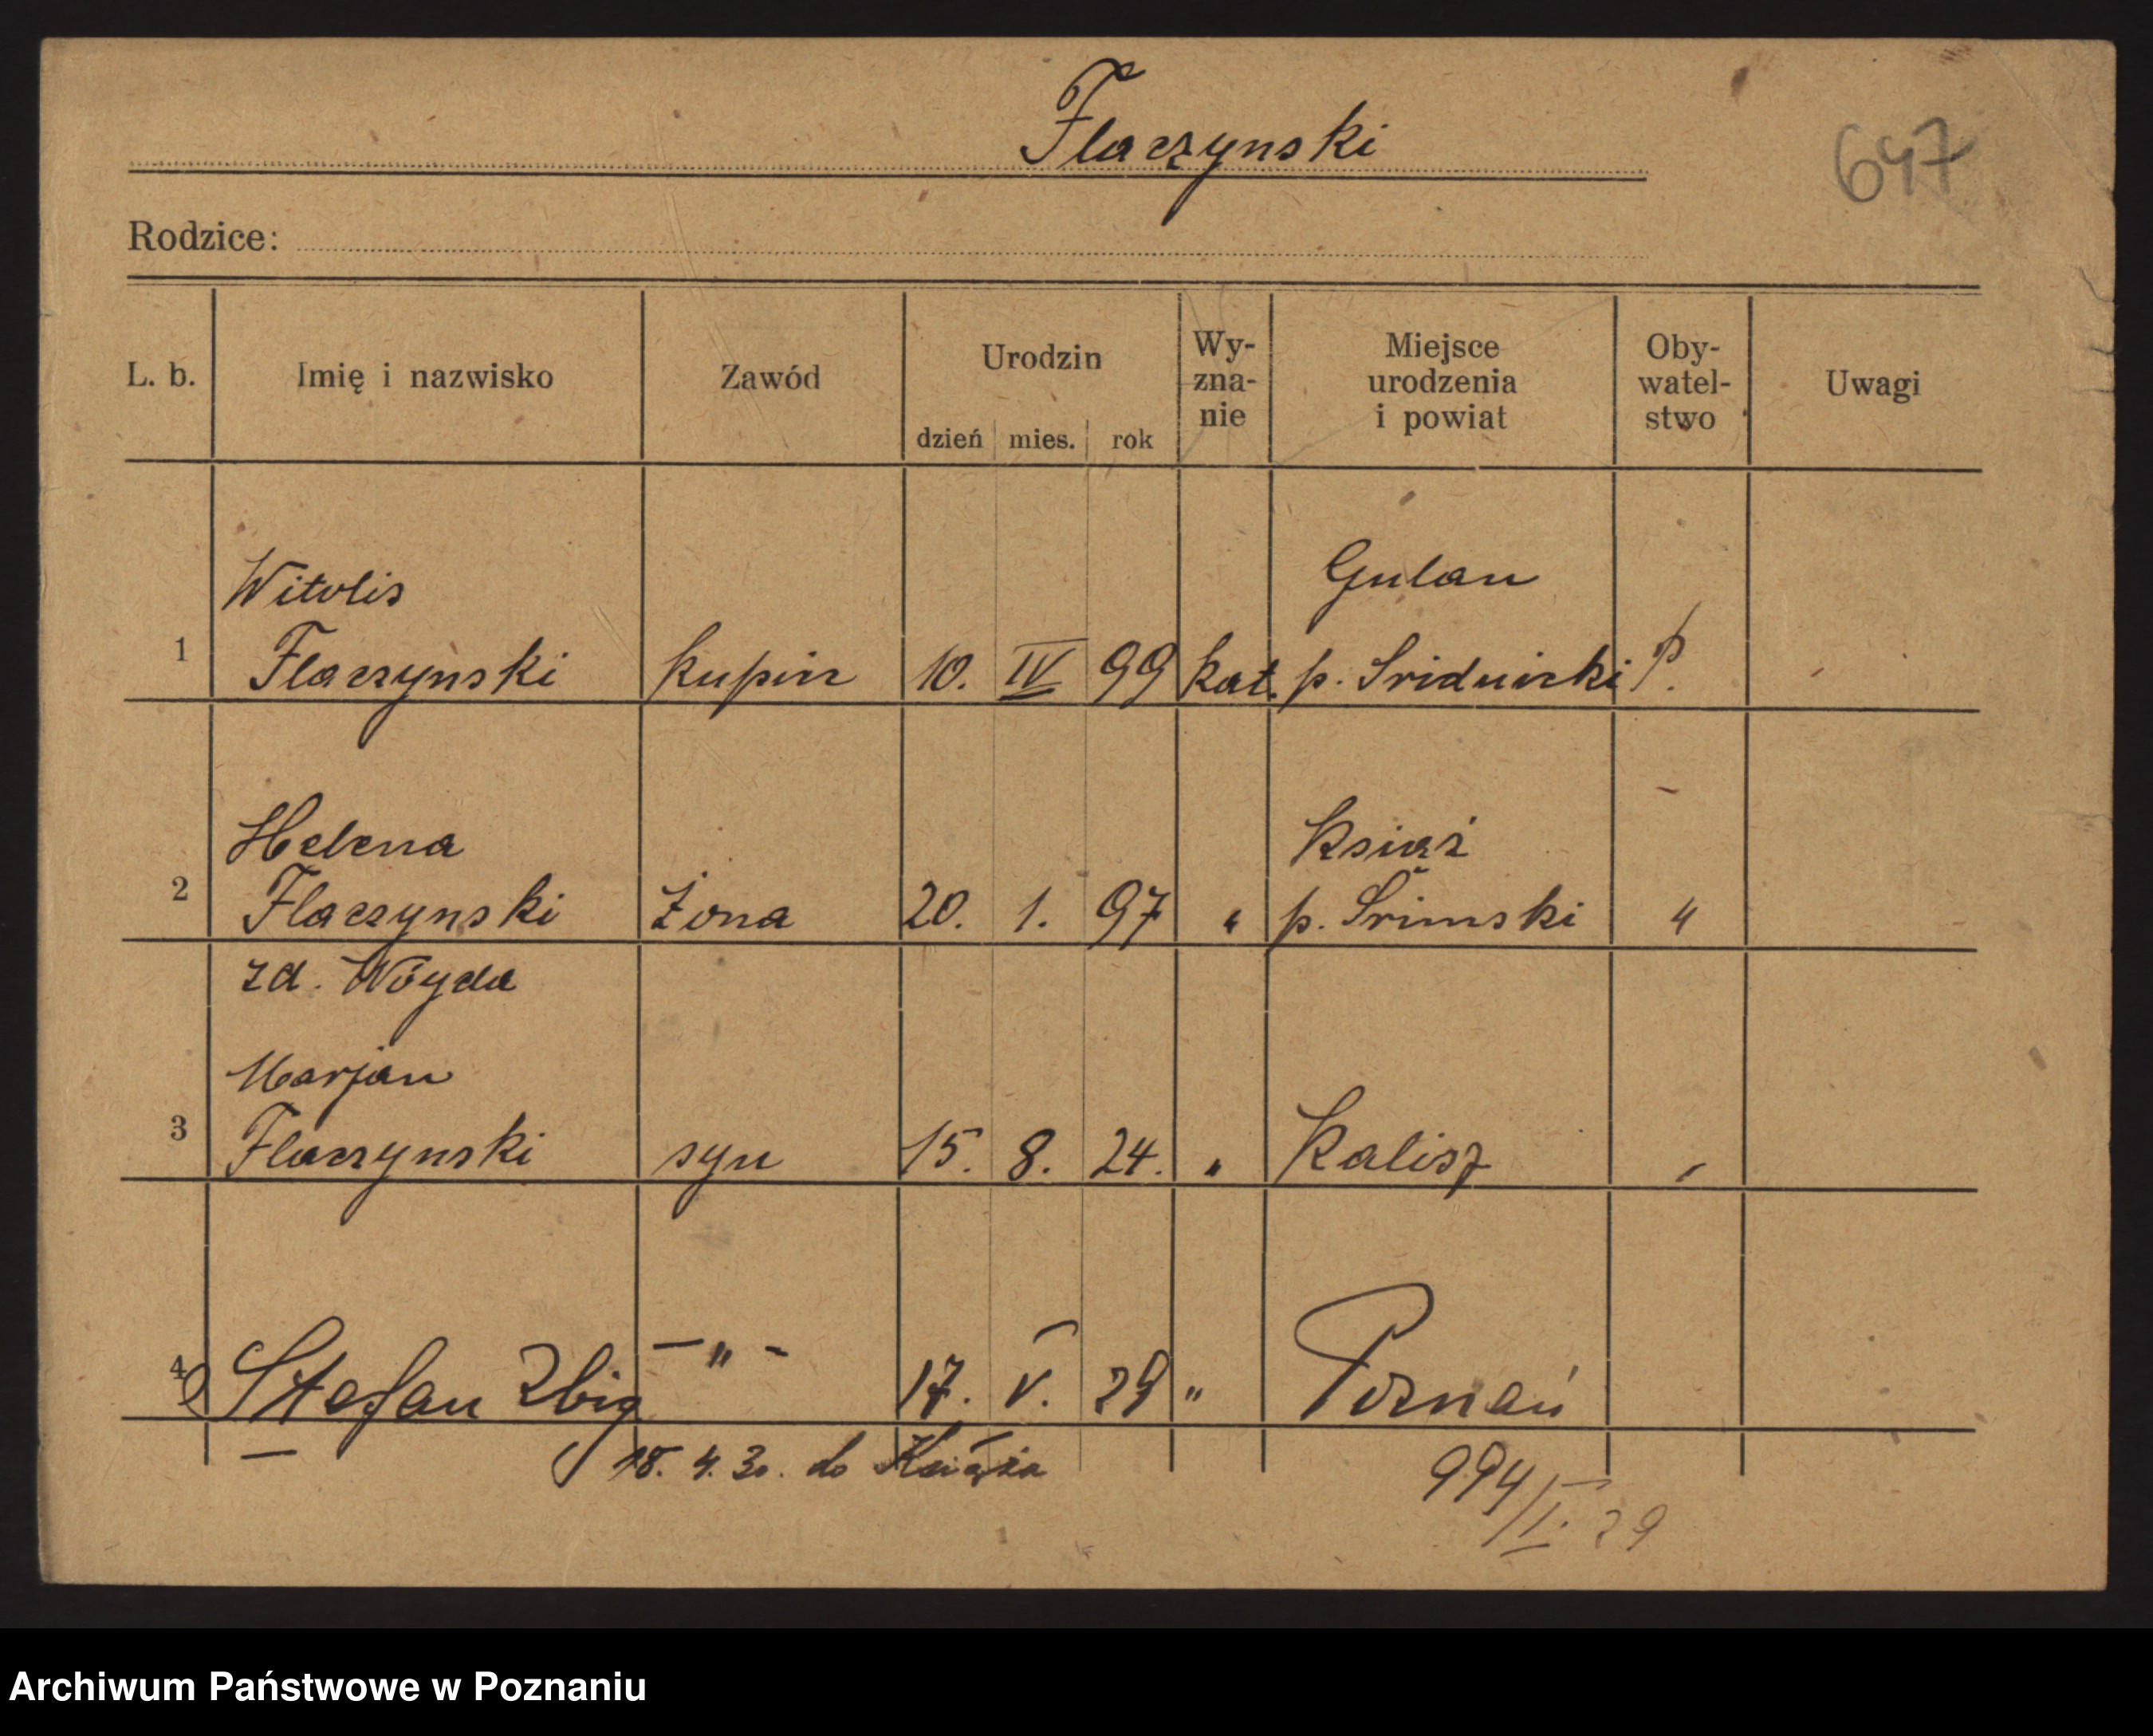 Flaczynski
647
Rodzice:
L. b. Imię i nazwisko Zawód Urodzin dzień mies. rok Wy-zna-nie Miejsce urodzenia i powiat Oby-watel-stwo Uwagi
Witolis Gulan
1 Flaczynski kupiec 10. IV 99 kat. p. Sridnicki P.
Helena Książ
2 Flaczynski żona 20. 1. 97 " p. Śrimski "
zd. Wóyda
Marjan
3 Flaczynski syn 15. 8. 24. " Kalisz "
4 Stefan Zbig — " - 17. V. 29 " Poznań
18. 4. 30. do Książa
994/I. 29
Archiwum Państwowe w Poznaniu